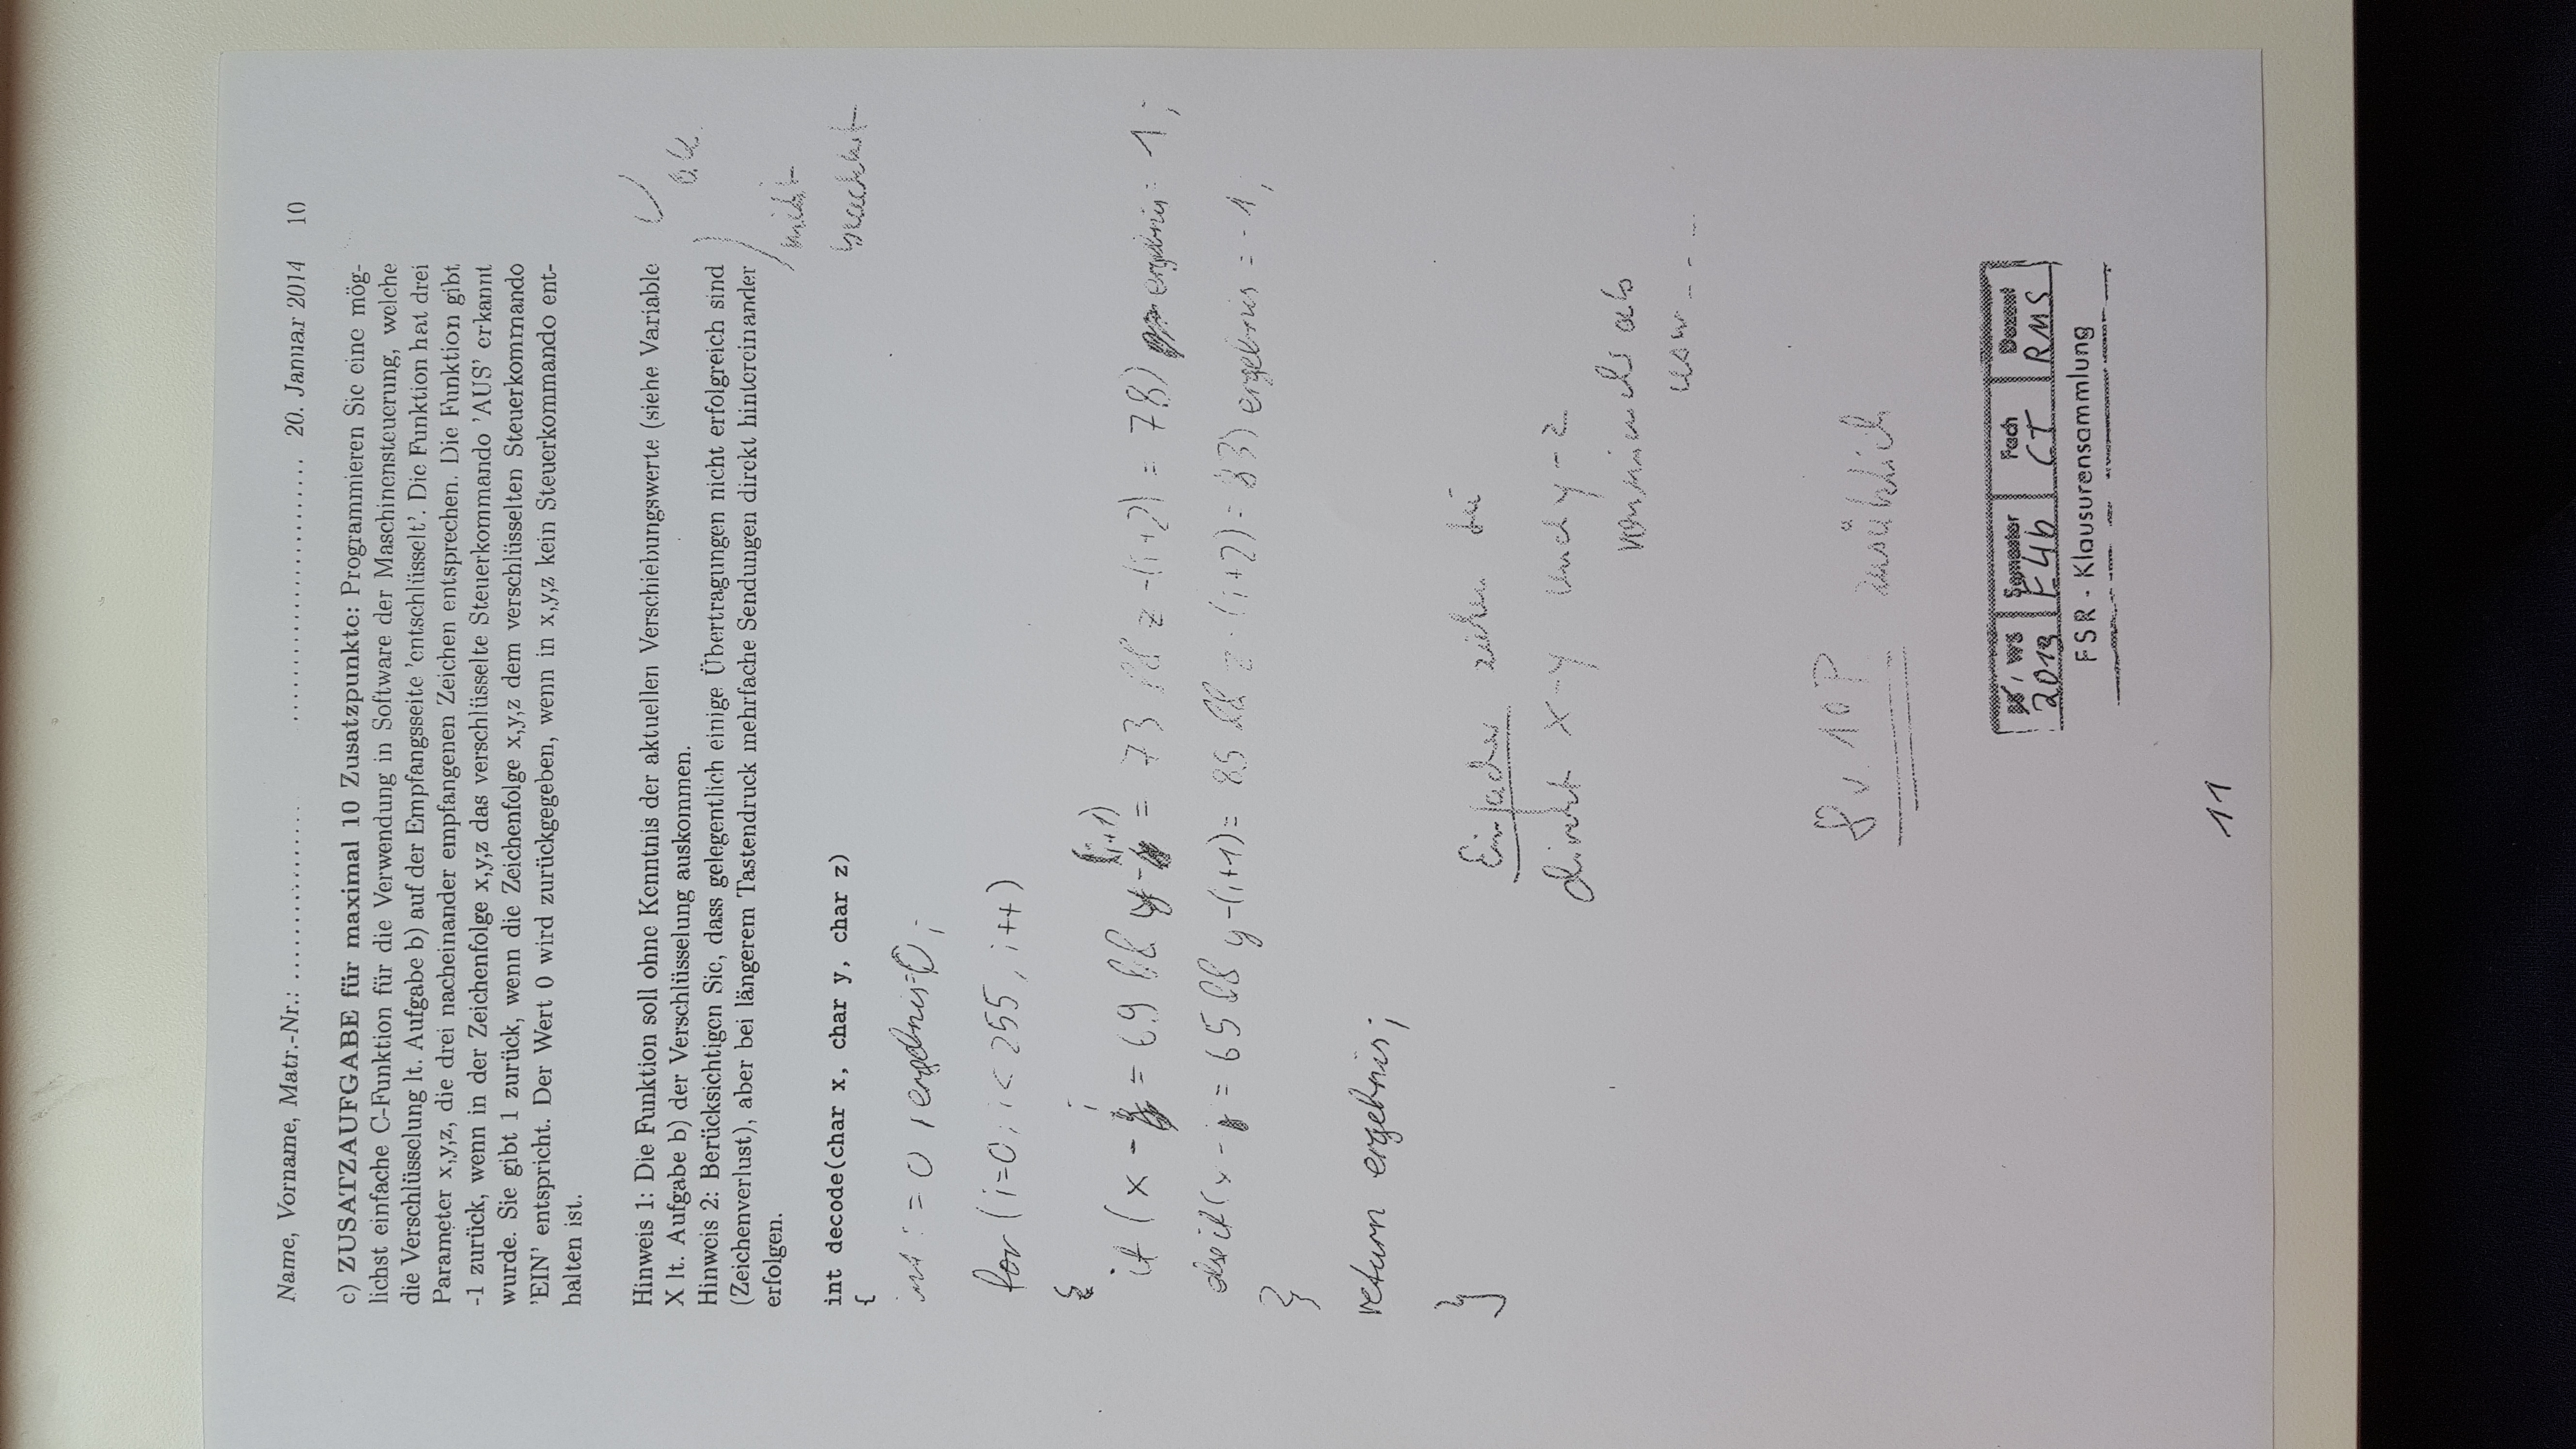 Name, Vorname, Matr.-Nr.: ................ ........................ 20. Januar 2014 10
c) ZUSATZAUFGABE für maximal 10 Zusatzpunkte: Programmieren Sie eine mög-
lichst einfache C-Funktion für die Verwendung in Software der Maschinensteuerung, welche
die Verschlüsselung lt. Aufgabe b) auf der Empfangsseite 'entschlüsselt'. Die Funktion hat drei
Parameter x,y,z, die drei nacheinander empfangenen Zeichen entsprechen. Die Funktion gibt
-1 zurück, wenn in der Zeichenfolge x,y,z das verschlüsselte Steuerkommando 'AUS' erkannt
wurde. Sie gibt 1 zurück, wenn die Zeichenfolge x,y,z dem verschlüsselten Steuerkommando
'EIN' entspricht. Der Wert 0 wird zurückgegeben, wenn in x,y,z kein Steuerkommando ent-
halten ist.
Hinweis 1: Die Funktion soll ohne Kenntnis der aktuellen Verschiebungswerte (siehe Variable
X lt. Aufgabe b) der Verschlüsselung auskommen.
o.k.
Hinweis 2: Berücksichtigen Sie, dass gelegentlich einige Übertragungen nicht erfolgreich sind
(Zeichenverlust), aber bei längerem Tastendruck mehrfache Sendungen direkt hintereinander
erfolgen.
nicht
beachtet
int decode(char x, char y, char z)
{
int i = 0, ergebnis=0;
for (i=0; i< 255, i++)
{
if (x - i = 69 && y - (i+1) = 73 && z -(i+2) = 78) ergebnis = 1;
else if (x - i = 65 && y-(i+1) = 85 && z - (i+2) = 83) ergebnis = -1;
}
return ergebnis;
}
Einfacher ziehen Sie
direkt x-y und y-z
voneinander ab
usw....
8 v. 10P zusätzlich
SS / WS Semester Fach Dozent
2013 E4b CT RMS
FSR - Klausurensammlung
11